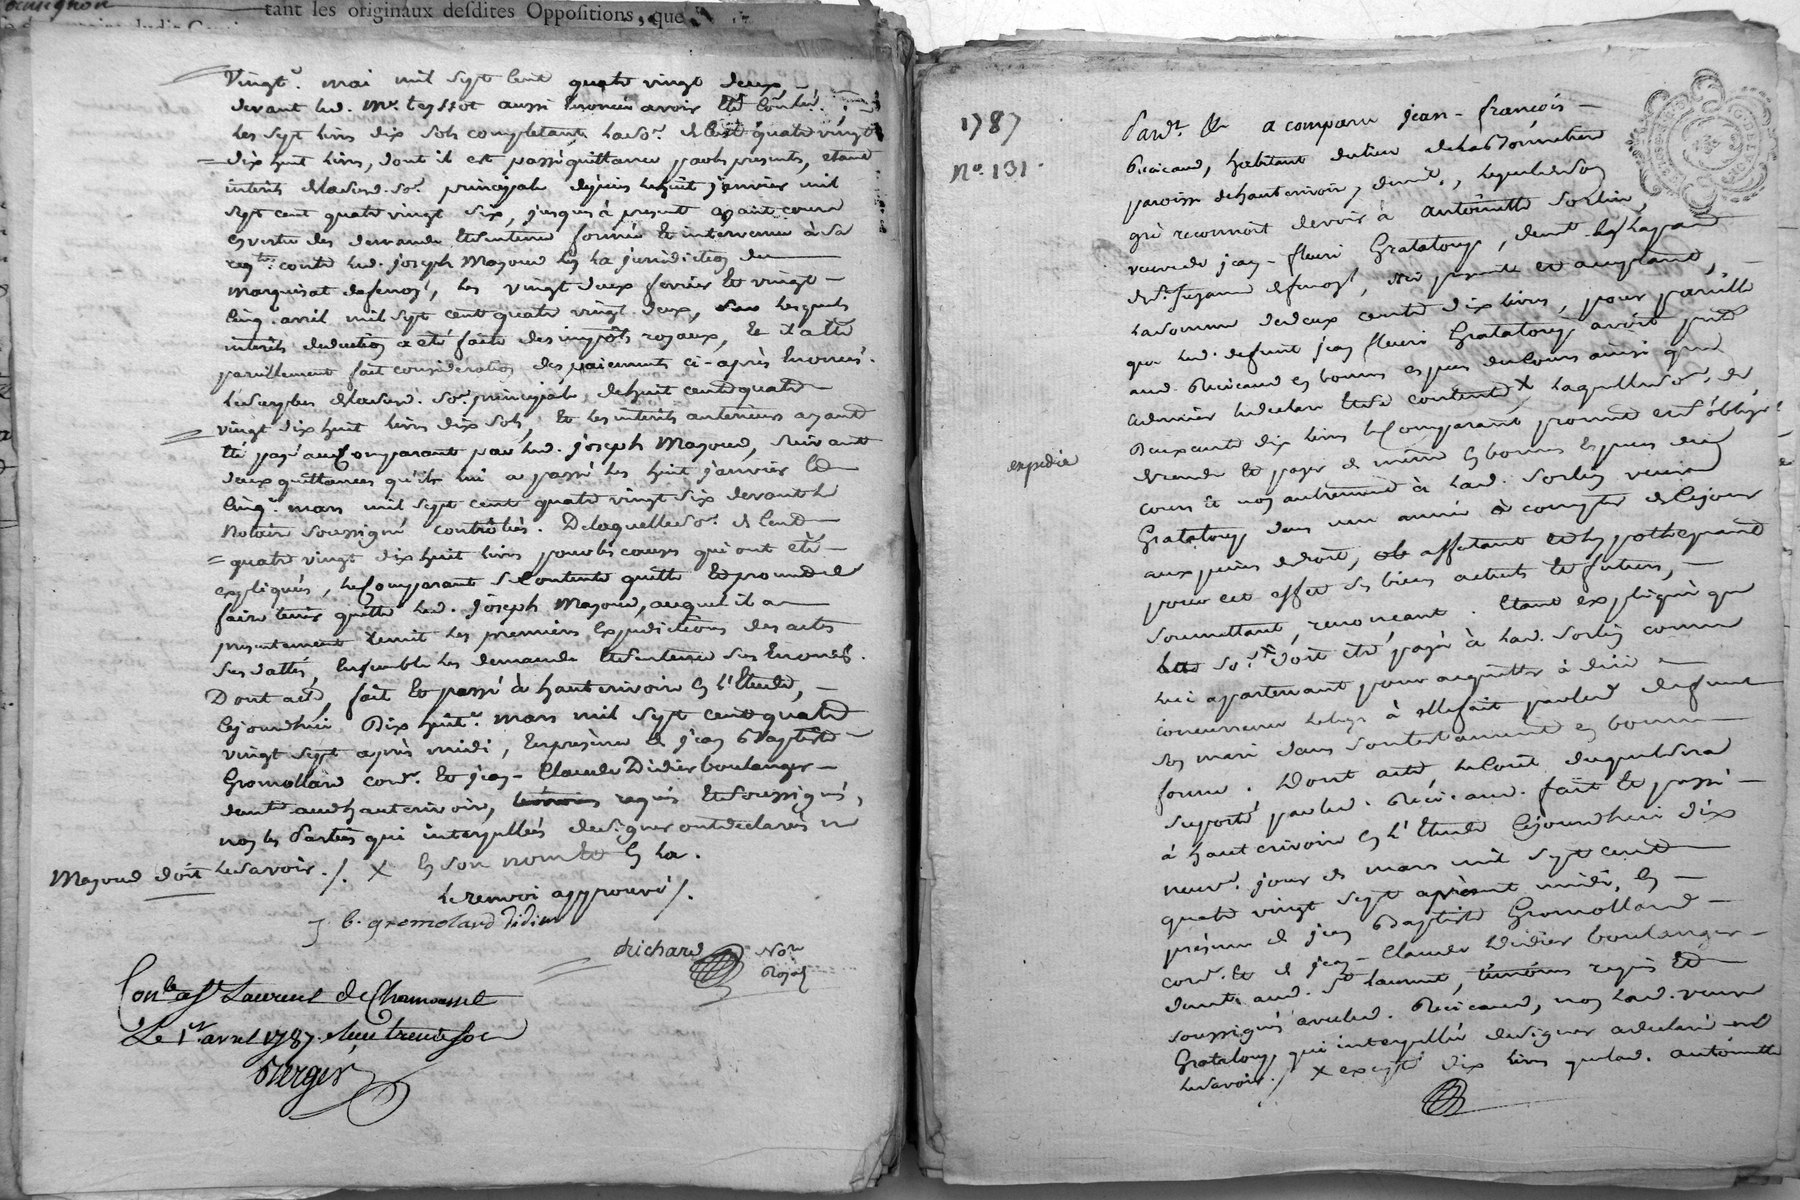 tant les originaux desdites Oppositions, que
Vingt.e mai mil sept cent quatre vingt deux
devant led. Me. teyssot aussi énoncé avoir été contlé.
les sept livres dix sols completants la So.e de Cent quatre vingt
dix huit livres, dont il est passé quittance par les presents, etant
interets de lasusd. So.e principale depuis le huit janvier mil
sept cent quatre vingt six, jusques à present ayant couru
en vertu des demande et Sentence formée et intervenue à sa
reqte. contre led. joseph Mazoud en la jurisdiction du
marquisat de fenoyl, les vingt deux fevrier et vingt
cinq avril mil sept cent quatre vingt deux, sur lesquels
interets deduction a été faite des impôts royaux, et il a été
pareillement fait consideration des paiements ci-après énoncés.
lesquels de lasusd. So.e principale de huit cent quatre
vingt dix huit livres dix sols, et les interets anterieurs ayant
été payé au Comparant par led. joseph Mazoud, suivant
deux quittances qu'il lui a passé les huit janvier et
cinq mars mil sept cent quatre vingt six devant le
Notaire soussigné contrôlées. De laquelle So.e de Cent
quatre vingt dix huit livres pour les causes qui ont été
expliquées, le Comparant se Contente quitte et promet
faire tenir quitte led. joseph Mazoud, auquel il a
presentement remit les premieres expeditions des actes
sus dattés, ensemble les demande et Sentence sus énoncés.
Dont acte, fait et passé à hauterivoire en l'Etude,
cejourdhui Dix huit.e mars mil sept cent quatre
vingt sept après midi, en presence de jean Baptiste
Gromolland cord.r et jean-Claude Didier boulanger
demt. aud. hauterivoire, temoins requis et soussignés,
non les Parties qui interpellées de signer ont declarés ne
le Savoir ./. X en son nom et en la.
Mazoud doit
le renvoi approuvé /.
j. b. gromoland didier
Richard Nore. Royal
Conle. a St Laurent de Chamousset
Le 1er. avril 1787. Reçu treize sols
Berger
1787
No. 131.
expedié
Pardt. Nre a comparu jean-françois
Bricaud, habitant du lieu de la Bonnetiere
paroisse de hauterivoire, demt., lequel de son
gré reconnoît devoir à antoinette Sorlin,
veuve de jean-fleuri Grataloup, demt.
de Ste. fuzanne de fenoyl, ici presente et acceptante,
la somme de deux cents dix livres, pour pareille
que led. defunt jean fleuri Grataloup avoit prêté
aud. Bricaud en bonnes especes du Cours ainsi que
ce dernier le declare et se contente X laquelle So.e de
Deux cents dix livres le Comparant promet et s'oblige
de rendre et payer de même en bonnes especes du
cours et non autrement à lad. Sorlin veuve
Grataloup dans une année à compter de ce jour
aux peines de droit, affectant et hypothequant
pour cet effet ses biens actuels et futurs,
soumettant, renonceant. Etant expliqué que
lad. So.e X doit être payé à lad. Sorlin comme
lui appartenant pour acquitter à düe
concurrence le legs à elle fait par led. defunt
son mari dans son testament en bonne
forme. Dont acte, le coût duquel sera
suporté par led. Bricaud. fait et passé
à hauterivoire en l'Etude cejourdhui dix
neuv.e jour de mars mil sept cent
quatre vingt sept après midi, en
présence de jean Baptiste Gromolland
cord.r et de jean-Claude Didier boulanger
demt. aud. St laurent, témoins requis et
soussignés avec led. Bricaud, non lad. veuve
Grataloup qui interpellée de signer a declaré ne
le savoir ./. X excepté dix livres que lad. antoinette